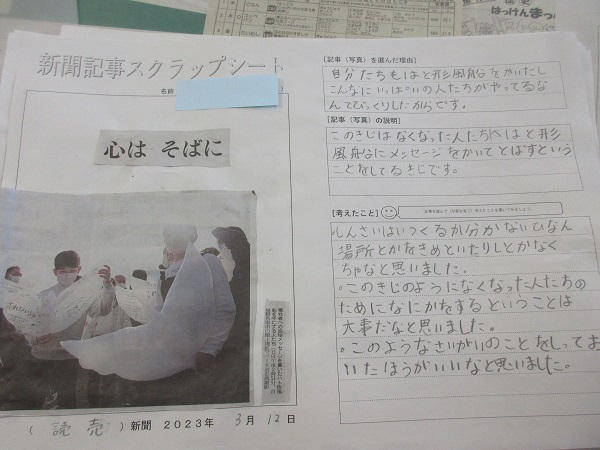 新聞記事スクラップシート
名前
心は そばに
( 読売 )新聞 2023年 3月 12日
[記事(写真)を選んだ理由]
自分たちもはと形風船をかいたし
こんなにいっぱいの人たちがやってるな
んてびっくりしたからです。
[記事(写真)の説明]
このきじはなくなった人たちへはと形
風船にメッセージをかいてとばすという
ことをしてるきじです。
[考えたこと]
しんさいはいつくるか分かないひなん
場所とかをきめといたりしとかなく
ちゃなと思いました。
・このきじのようになくなった人たちの
ためになにかをするということは
大事だなと思いました。
。このようなさいがいのことをしってお
いたほうがいいなと思いました。
はっけんまっ